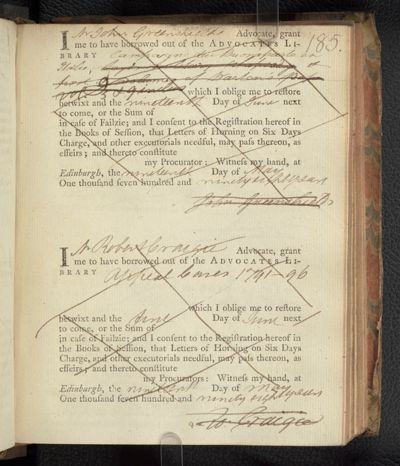 185.
I Mr John Greenshields Advocate, grant
me to have borrowed out of the ADVOCATES LI-
BRARY
which I oblige me to restore
betwixt and the nineteenth Day of June next
to come, or the Sum of
in case of Failzie; and I consent to the Registration hereof in
the Books of Session, that Letters of Horning on Six Days
Charge, and other executorials needful, may pass thereon, as
effeirs; and thereto constitute
my Procurator: Witness my hand, at
Edinburgh, the nineteenth Day of May
One thousand seven hundred and ninety eight years
John Greenshields
I Mr Robert Craigie Advocate, grant
me to have borrowed out of the ADVOCATES LI-
BRARY Appeal Cases 1791-96
which I oblige me to restore
betwixt and the Day of June next
to come, or the Sum of
in case of Failzie; and I consent to the Registration hereof in
the Books of Session, that Letters of Horning on Six Days
Charge, and other executorials needful, may pass thereon, as
effeirs; and thereto constitute
my Procurators: Witness my hand, at
Edinburgh, the nineteenth Day of May
One thousand seven hundred and ninety eight years
Ro Craigie